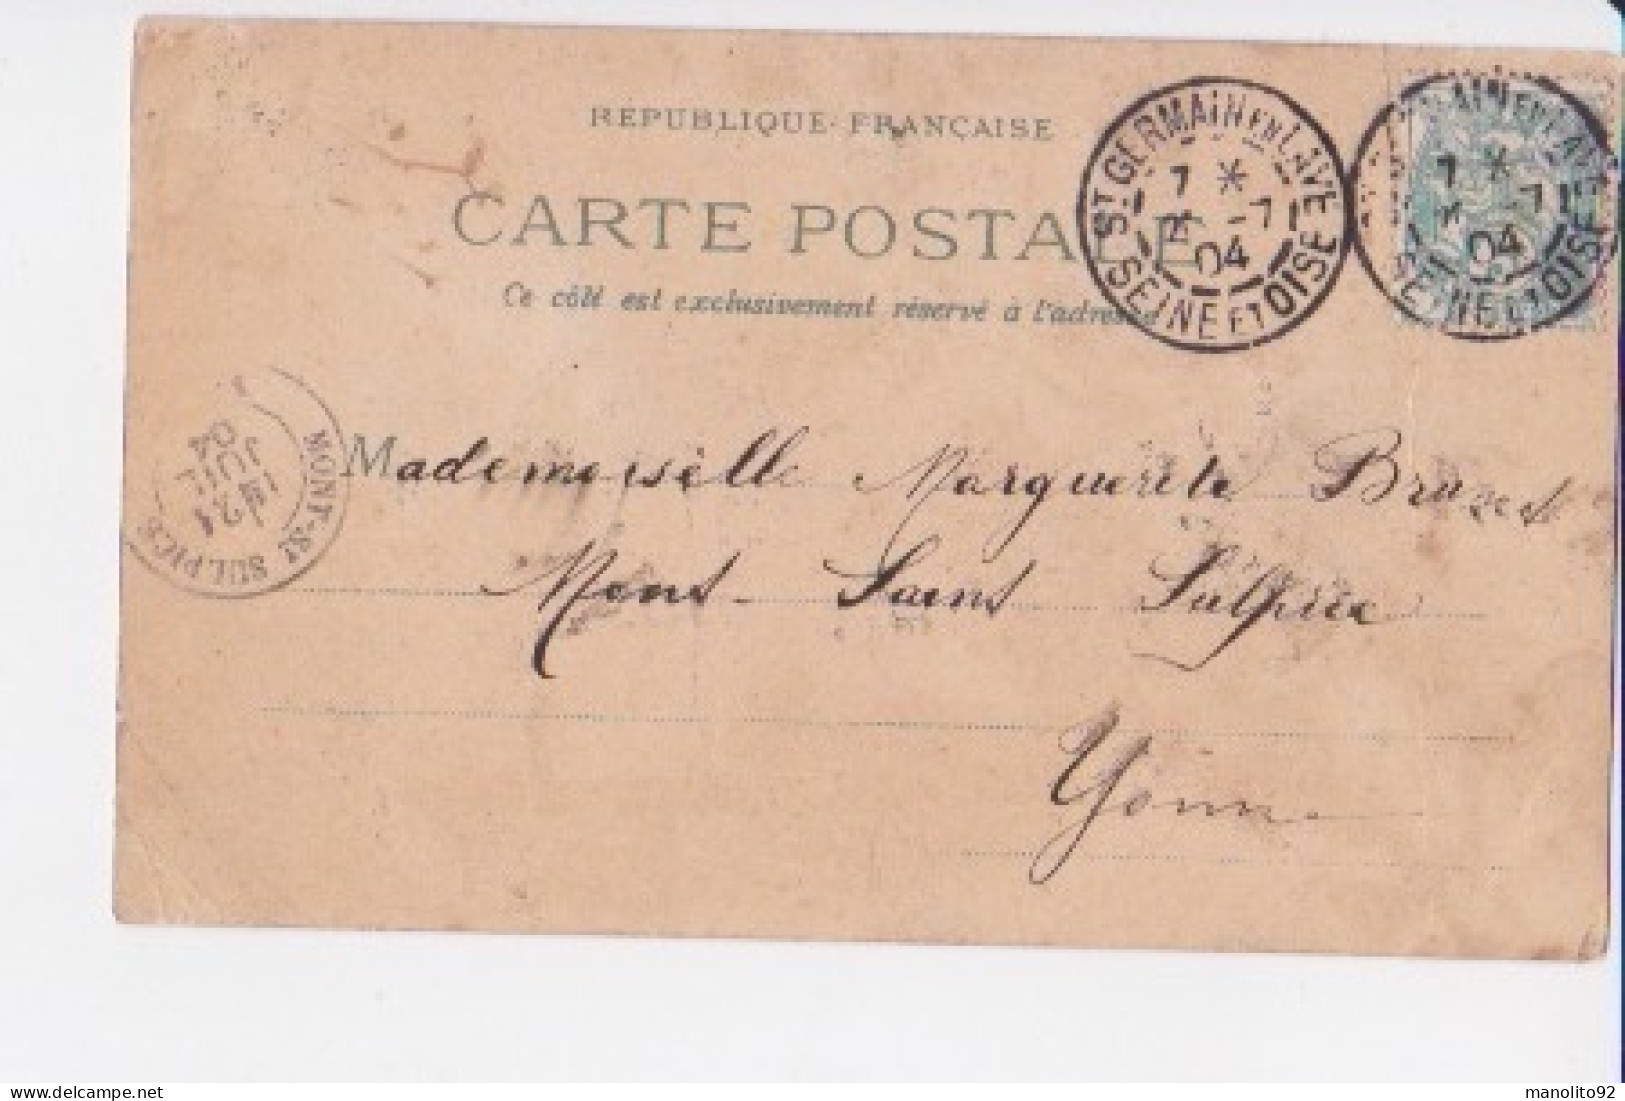 RÉPUBLIQUE FRANÇAISE
CARTE POSTALE
Ce côté est exclusivement réservé à l'adresse
ST GERMAIN EN LAYE
7 *
-7
04
SEINE ET OISE
7 *
-7
04
SEINE ET OISE
MONT-ST SULPICE
21
JUIL
04
Mademoiselle Marguerite
Mont Saint Sulpice
Yonne
manolito92